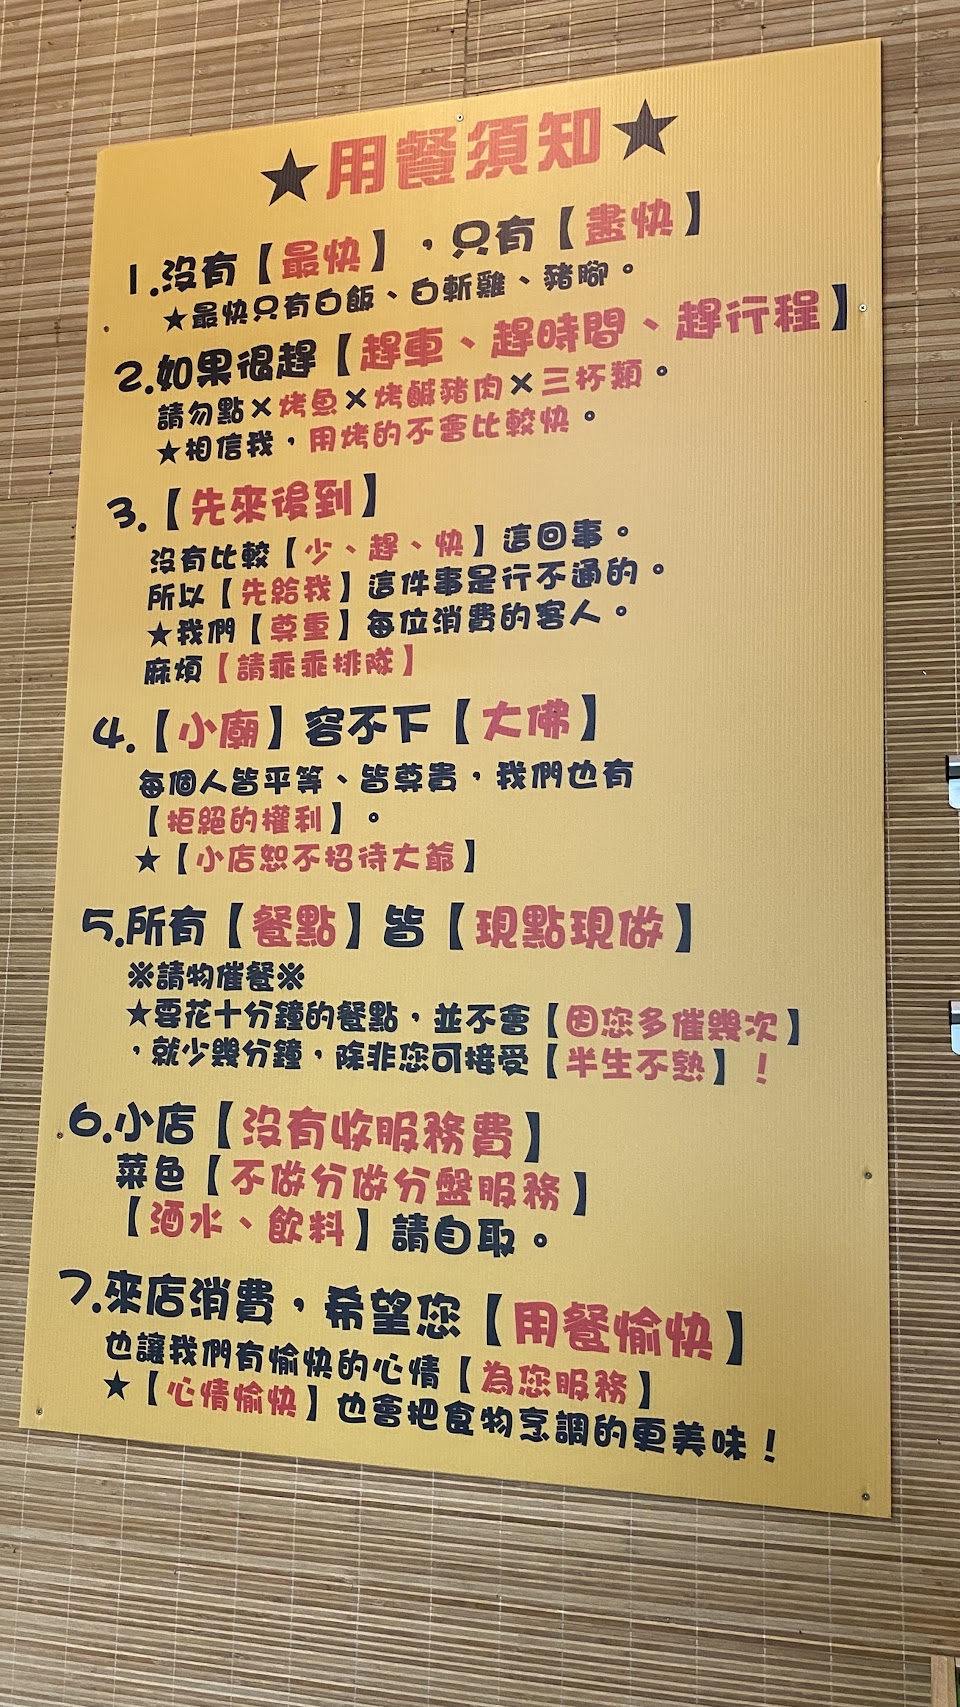 ★用餐須知★
1.沒有【最快】，只有【盡快】
★最快只有白飯、白斬雞、豬腳。
2.如果很趕【趕車、趕時間、趕行程】
請勿點×烤魚×烤鹹豬肉×三杯類。
★相信我，用烤的不會比較快。
3.【先來後到】
沒有比較【少、趕、快】這回事。
所以【先給我】這件事是行不通的。
★我們【尊重】每位消費的客人。
麻煩【請乖乖排隊】
4.【小廟】容不下【大佛】
每個人皆平等、皆尊貴，我們也有
【拒絕的權利】。
★【小店恕不招待大爺】
5.所有【餐點】皆【現點現做】
※請物催餐※
★要花十分鐘的餐點，並不會【因您多催幾次】
，就少幾分鐘，除非您可接受【半生不熟】！
6.小店【沒有收服務費】
菜色【不做分做分盤服務】
【酒水、飲料】請自取。
7.來店消費，希望您【用餐愉快】
也讓我們有愉快的心情【為您服務】
★【心情愉快】也會把食物烹調的更美味！